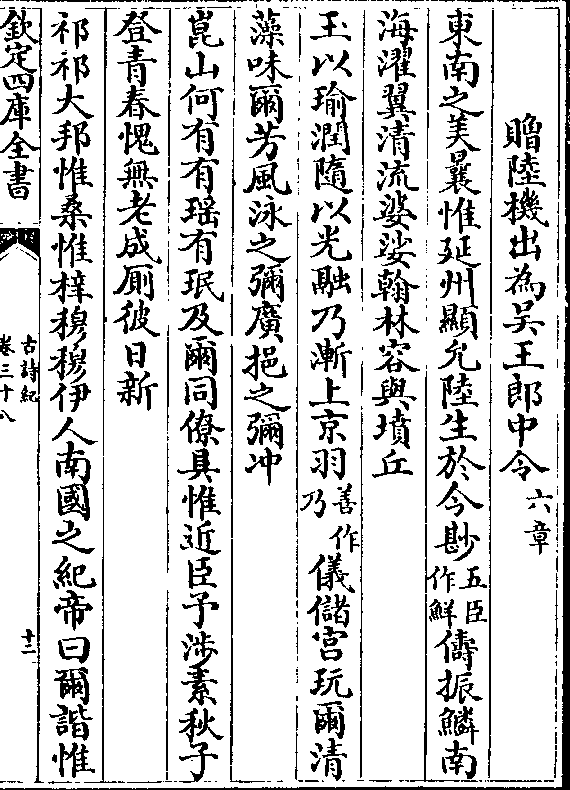 贈陸機出為吳王郎中令六章
東南之美曩惟延州顯允陸生於今尠五臣作鮮儔振鱗南
海濯翼清流婆娑翰林容與墳丘
玉以瑜潤隨以光融乃漸上京羽善作乃儀儲宮玩爾清
藻味爾芳風泳之彌廣挹之彌冲
崑山何有有瑶有珉及爾同僚具惟近臣予涉素秋子
登青春愧無老成厠彼日新
祁祁大邦惟桑惟梓穆穆伊人南國之紀帝曰爾諧惟
欽定四庫全書
古詩紀
卷三十八
十二